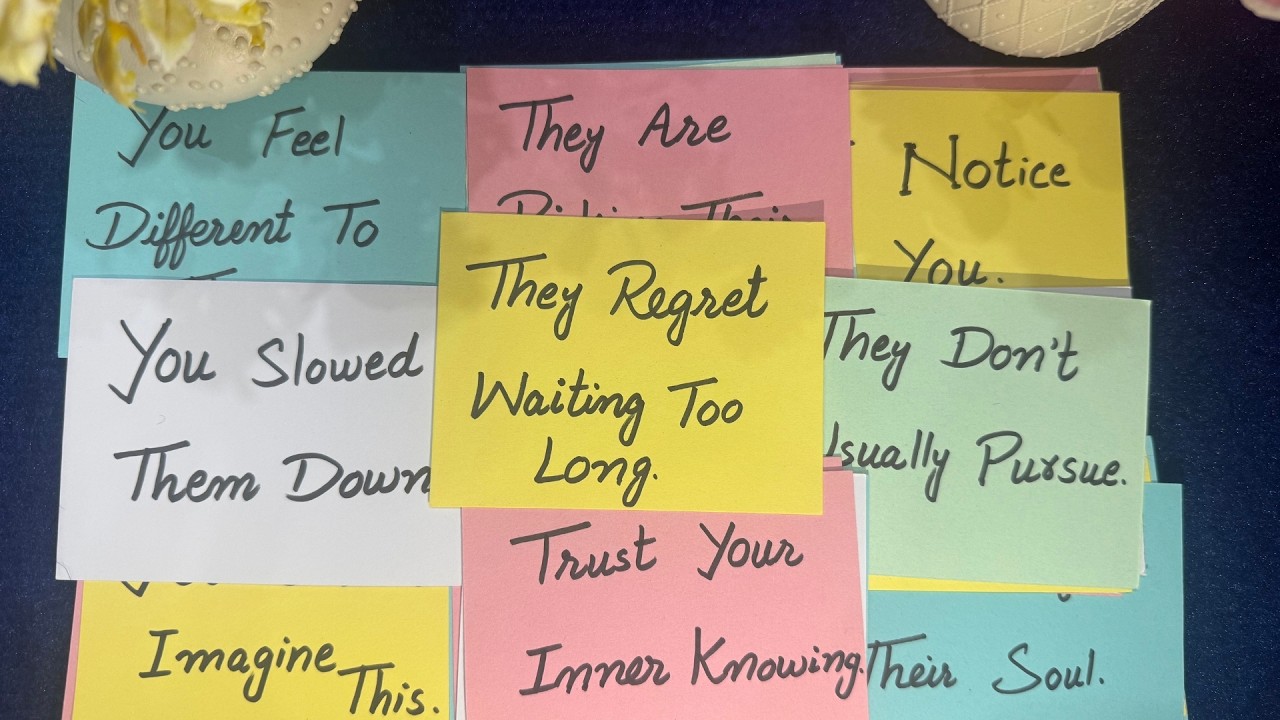 You Feel
Different To
They Are
Their
Notice
You.
You Slowed
Them Down
They Regret
Waiting Too
Long.
They Don't
Usually Pursue.
Imagine
This.
Trust Your
Inner Knowing.
Their Soul.